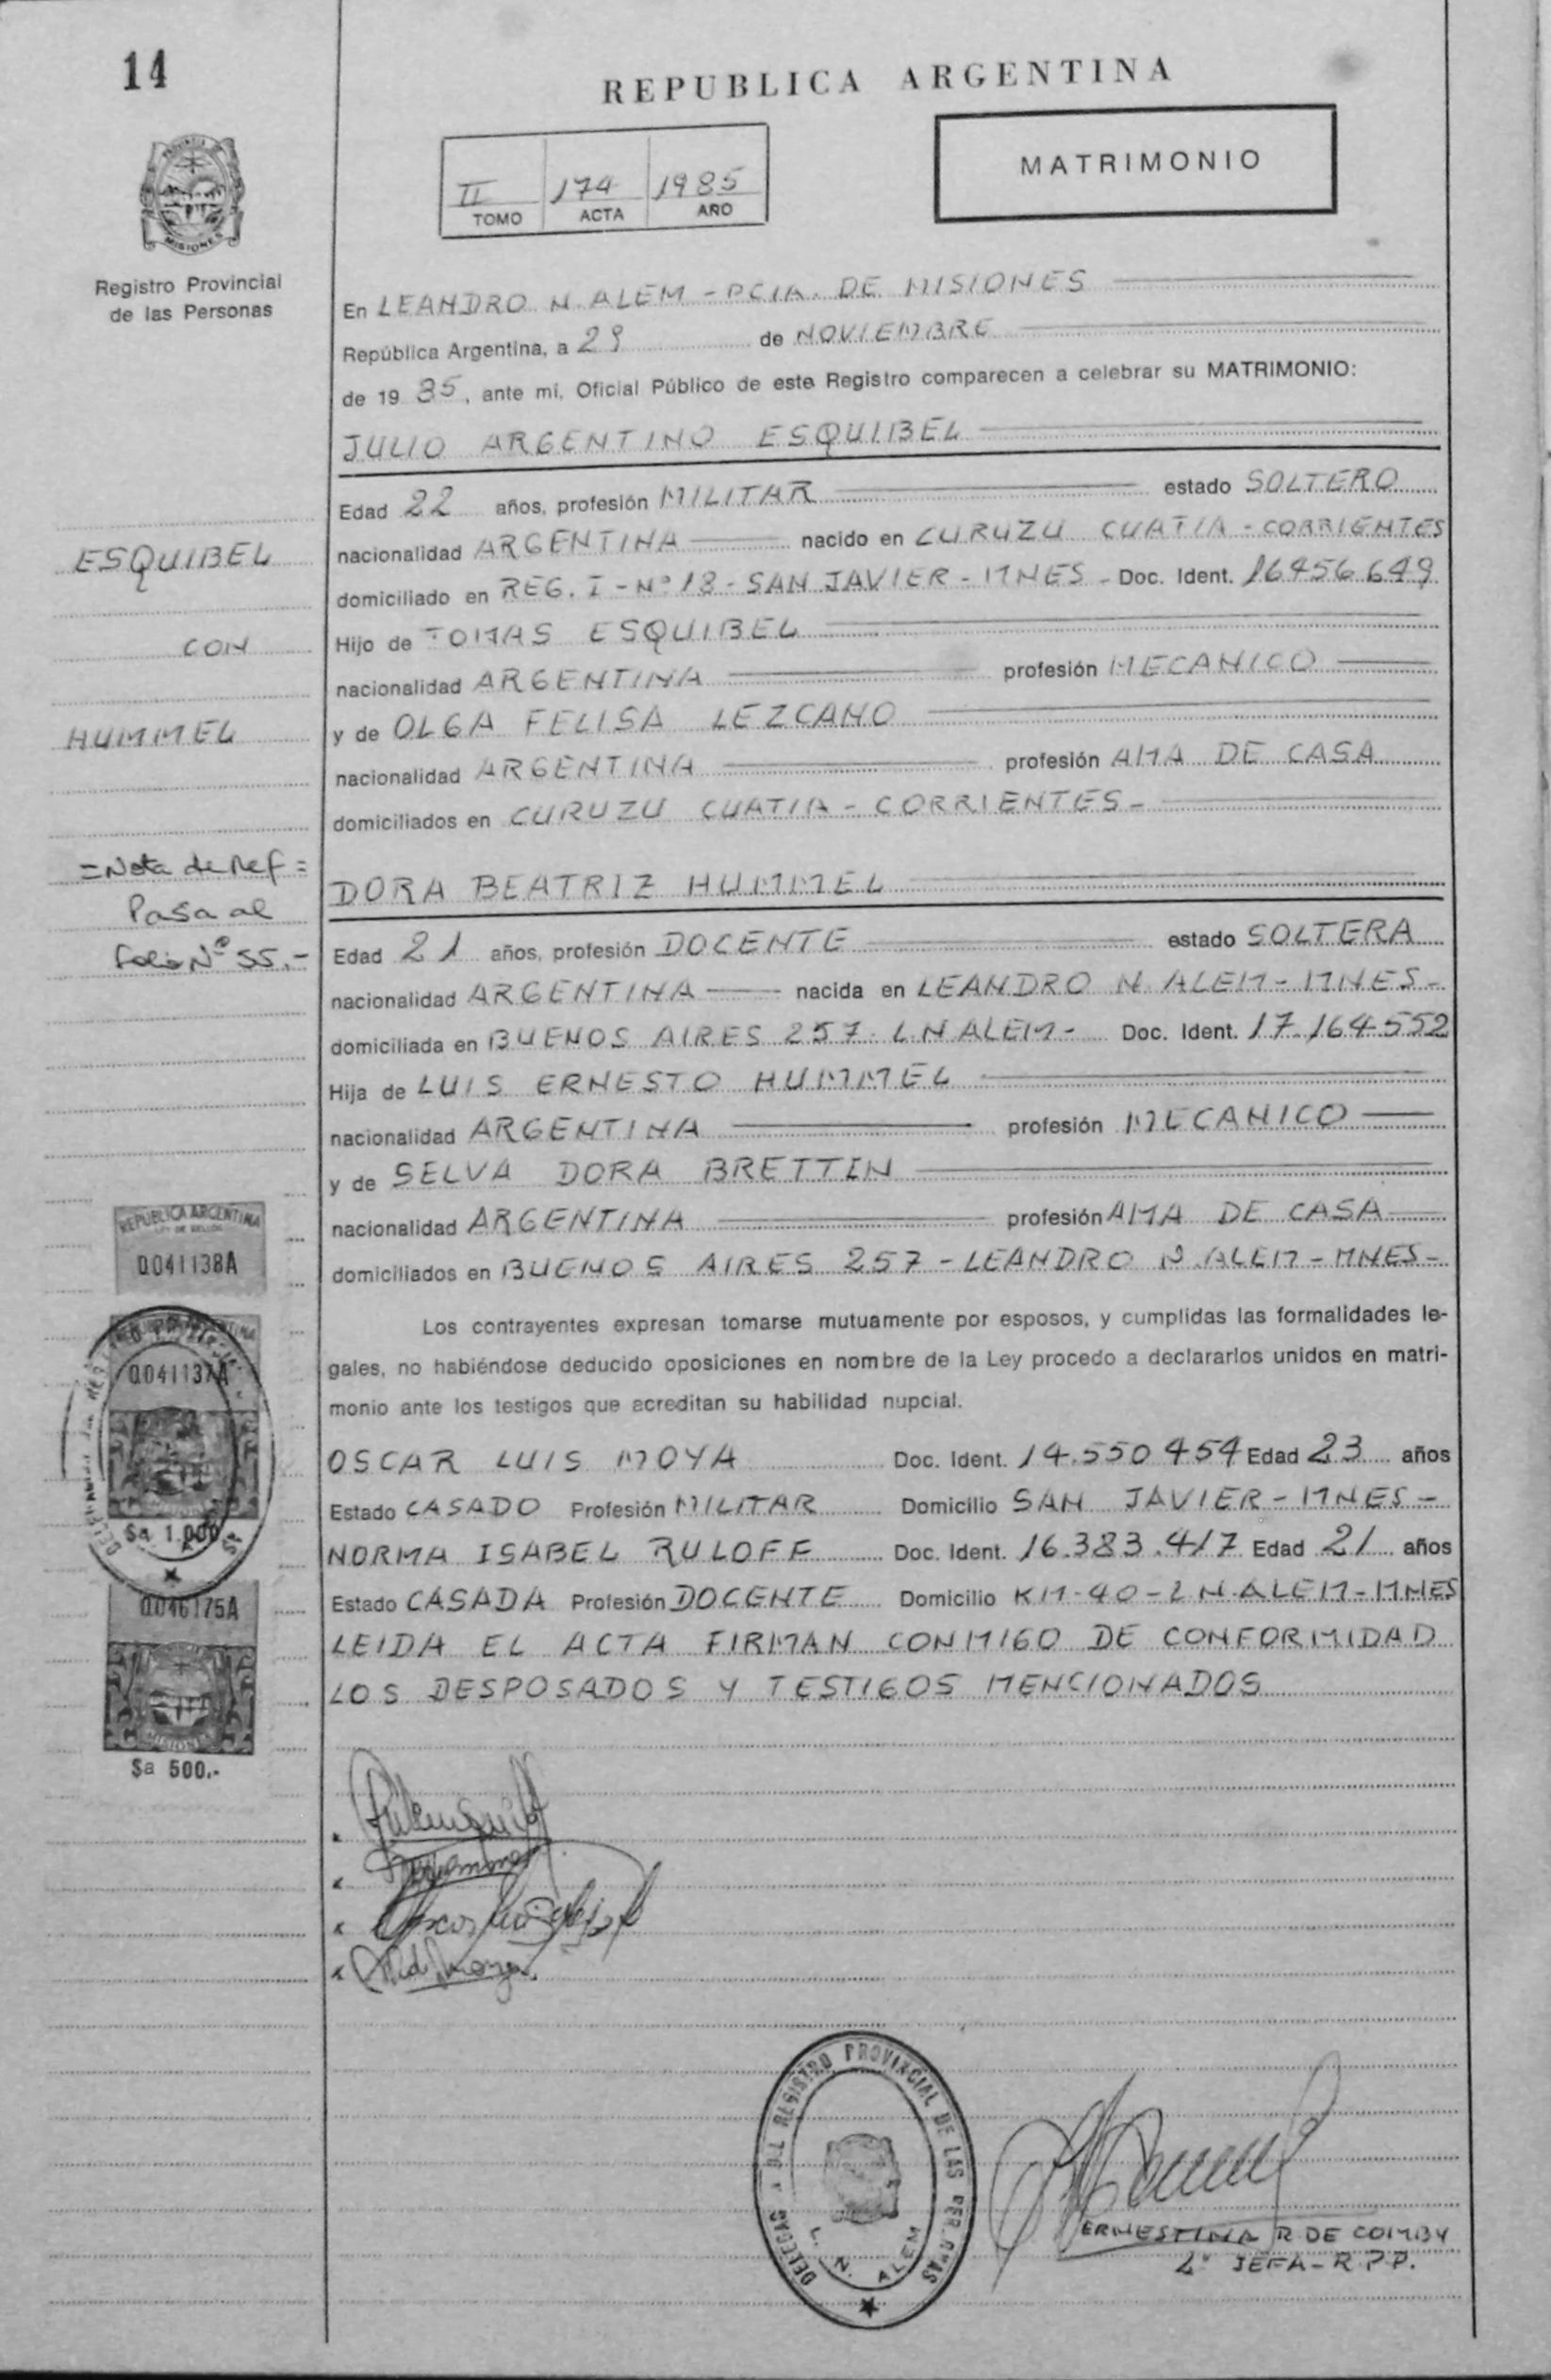 14
REPUBLICA ARGENTINA
II 174 1985
TOMO ACTA AÑO
MATRIMONIO
PROVINCIA DE
MISIONES
Registro Provincial
de las Personas
En LEANDRO N. ALEM - PCIA. DE MISIONES
República Argentina, a 29 de NOVIEMBRE
de 19 85, ante mi, Oficial Público de este Registro comparecen a celebrar su MATRIMONIO:
JULIO ARGENTINO ESQUIBEL
Edad 22 años, profesión MILITAR estado SOLTERO
nacionalidad ARGENTINA nacido en CURUZU CUATIA - CORRIENTES
domiciliado en REG. I - Nº 18 - SAN JAVIER - MNES - Doc. Ident. 16456649
Hijo de TOMAS ESQUIBEL
nacionalidad ARGENTINA profesión MECANICO
y de OLGA FELISA LEZCANO
nacionalidad ARGENTINA profesión AMA DE CASA
domiciliados en CURUZU CUATIA - CORRIENTES -
ESQUIBEL
CON
HUMMEL
= Nota de Ref =
Pasa al
folio Nº 55.-
DORA BEATRIZ HUMMEL
Edad 21 años, profesión DOCENTE estado SOLTERA
nacionalidad ARGENTINA nacida en LEANDRO N. ALEM - MNES -
domiciliada en BUENOS AIRES 257 - L.N ALEM - Doc. Ident. 17.164.552
Hija de LUIS ERNESTO HUMMEL
nacionalidad ARGENTINA profesión MECANICO
y de SELVA DORA BRETTIN
nacionalidad ARGENTINA profesión AMA DE CASA
domiciliados en BUENOS AIRES 257 - LEANDRO N. ALEM - MNES -
Los contrayentes expresan tomarse mutuamente por esposos, y cumplidas las formalidades le-
gales, no habiéndose deducido oposiciones en nombre de la Ley procedo a declararlos unidos en matri-
monio ante los testigos que acreditan su habilidad nupcial.
OSCAR LUIS MOYA Doc. Ident. 14.550 454 Edad 23 años
Estado CASADO Profesión MILITAR Domicilio SAN JAVIER - MNES -
NORMA ISABEL RULOFF Doc. Ident. 16.383.417 Edad 21 años
Estado CASADA Profesión DOCENTE Domicilio KM - 40 - L N. ALEM - MNES
LEIDA EL ACTA FIRMAN CONMIGO DE CONFORMIDAD
LOS DESPOSADOS Y TESTIGOS MENCIONADOS
REPUBLICA ARGENTINA
LEY DE SELLOS
0041138A
0041137A
$a 1.000
0046175A
$a 500.-
REGISTRO PROVINCIAL DE LAS
L. N. ALEM
ERNESTINA R DE COIMBY
2º JEFA - R.P.P.